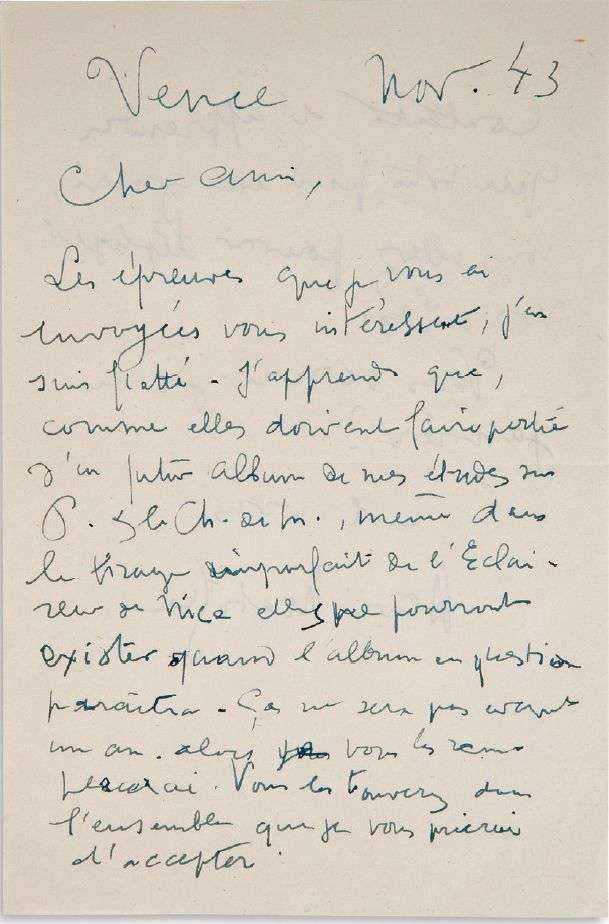 Vence Nov. 43
Cher ami,
Les épreuves que je vous ai
envoyées vous intéressent, j'en
suis flatté - J'apprends que,
comme elles doivent faire partie
d'un futur album de mes études sur
P. & le Ch. de m., même dans
le tirage imparfait de l'Eclai-
reur de Nice elles ne pourront
exister quand l'album en question
paraîtra - Ça ne sera pas avant
un an. alors vous les rem-
placerai. Vous les trouverez dans
l'ensemble que je vous prierai
d'accepter.